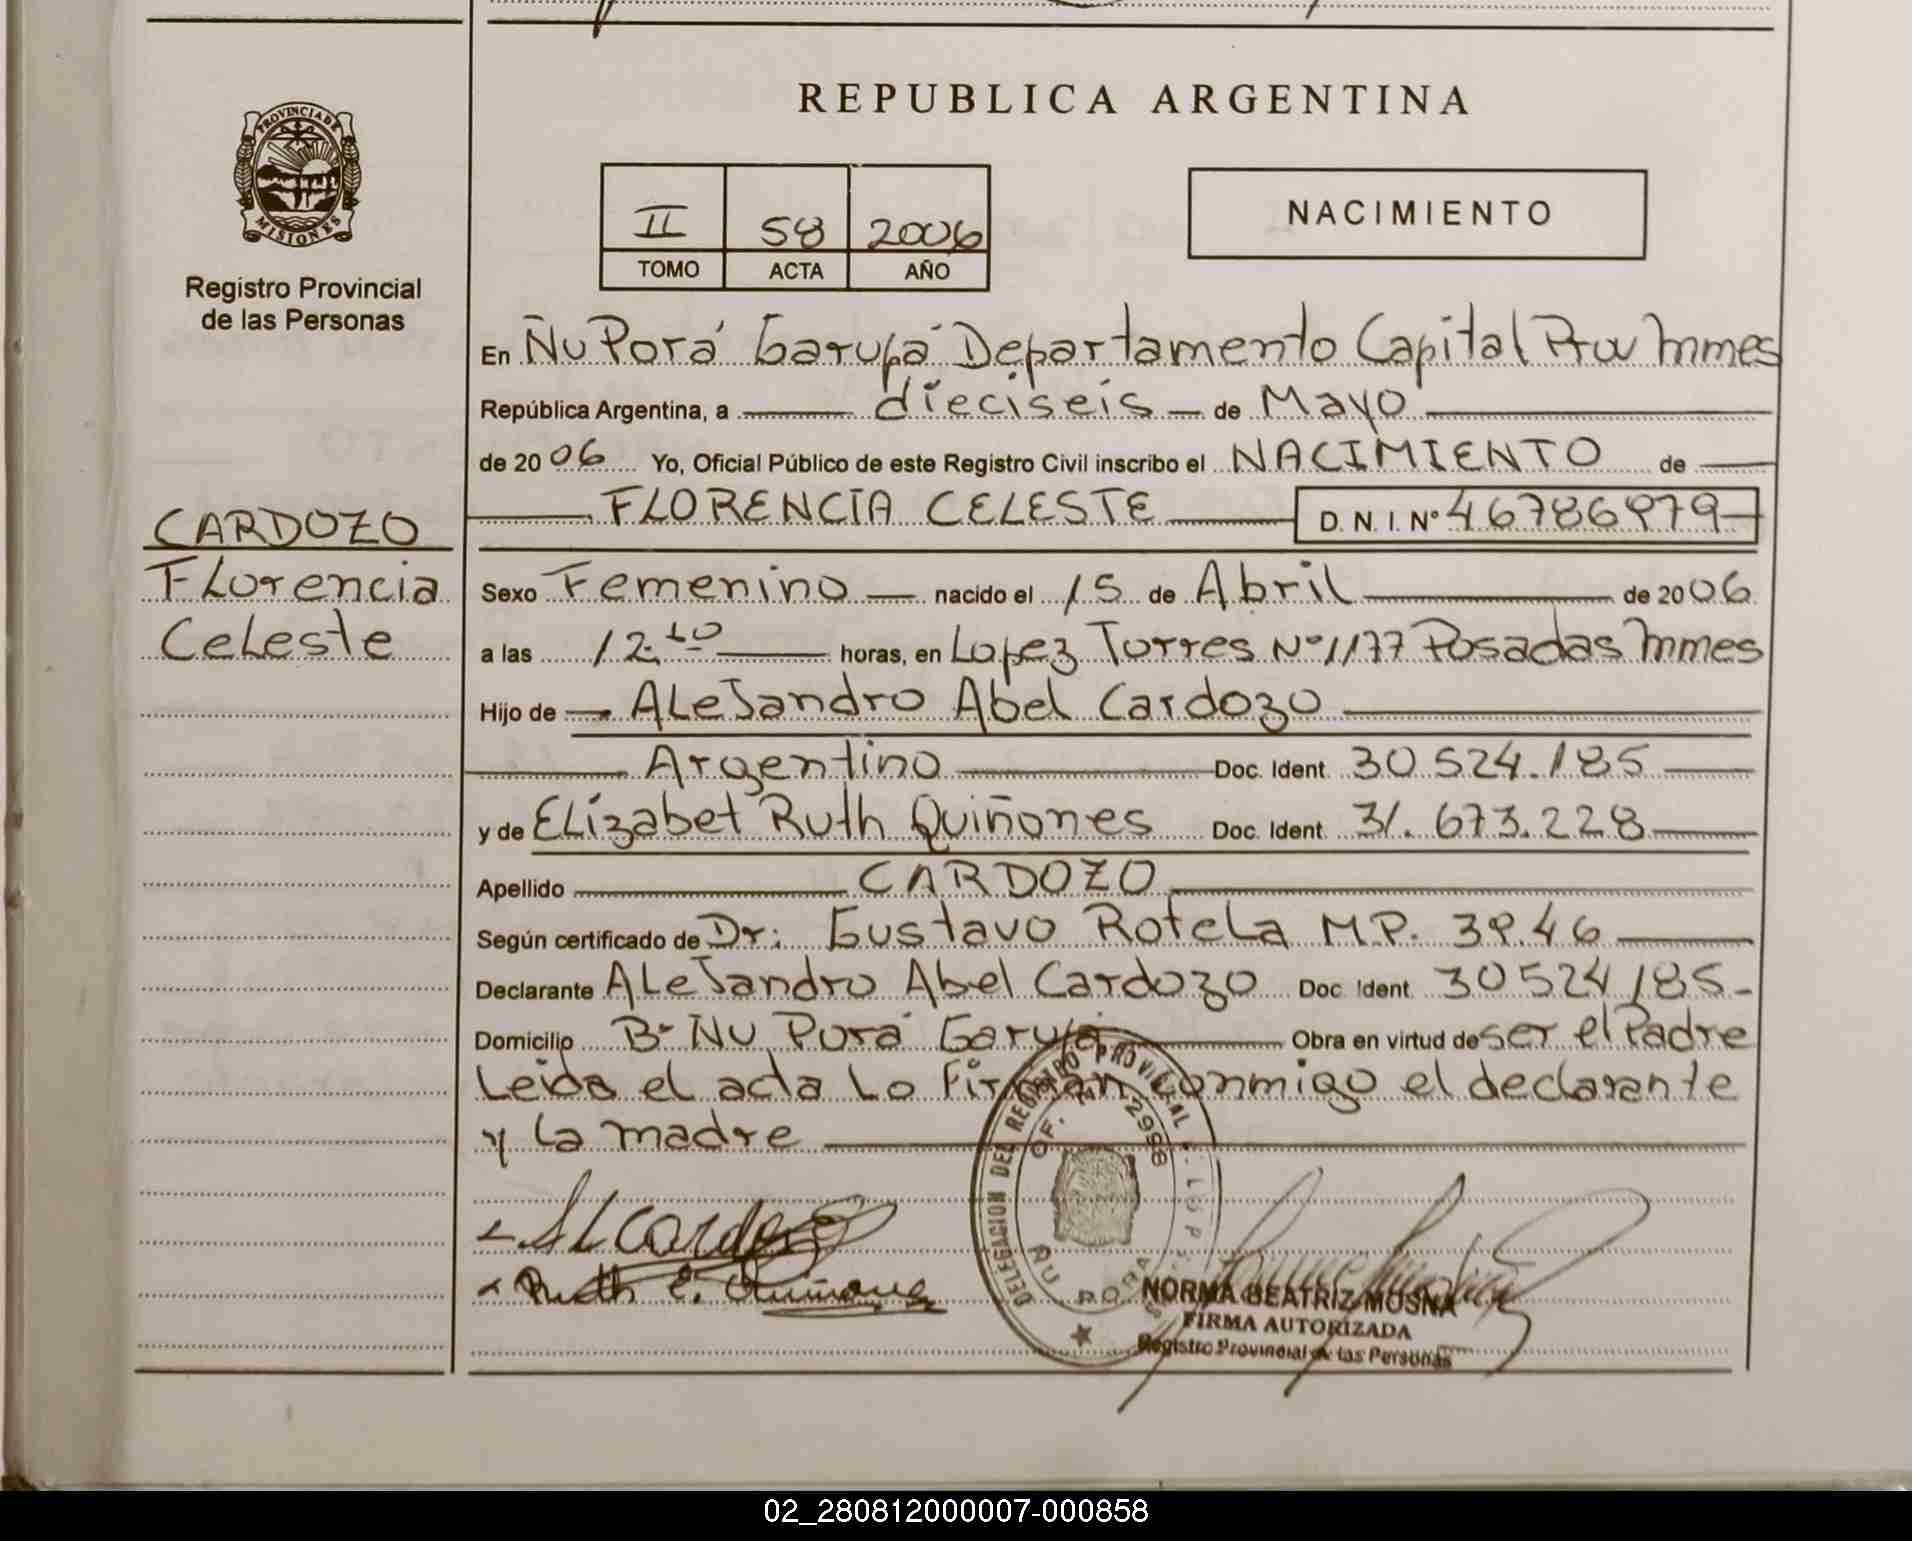 PROVINCIA DE
MISIONES
Registro Provincial
de las Personas
CARDOZO
Florencia
Celeste
REPUBLICA ARGENTINA
II 58 2006
TOMO ACTA AÑO
NACIMIENTO
En Ñu Porá Garupá Departamento Capital Prov Mnnes
República Argentina, a dieciseis de Mayo
de 2006 Yo, Oficial Público de este Registro Civil inscribo el NACIMIENTO de
FLORENCIA CELESTE D. N. I. Nº 46786979
Sexo Femenino nacido el 15 de Abril de 2006
a las 12.10 horas, en Lopez Torres Nº 1177 Posadas Mnnes
Hijo de Alejandro Abel Cardozo
Argentino Doc. Ident. 30524.185
y de Elizabet Ruth Quiñones Doc. Ident. 31.673.228
Apellido CARDOZO
Según certificado de Dr: Gustavo Rotela M.P. 39.46
Declarante Alejandro Abel Cardozo Doc. Ident. 30524185
Domicilio Bº Ñu Porá Garupá Obra en virtud de ser el Padre
Leida el acta Lo Firman conmigo el declarante
y la madre
DELEGACION DEL REGISTRO PROVINCIAL
ÑU PORA
Ruth E. Quiñones
NORMA BEATRIZ MOSNA
FIRMA AUTORIZADA
Registro Provincial de las Personas
02_280812000007-000858